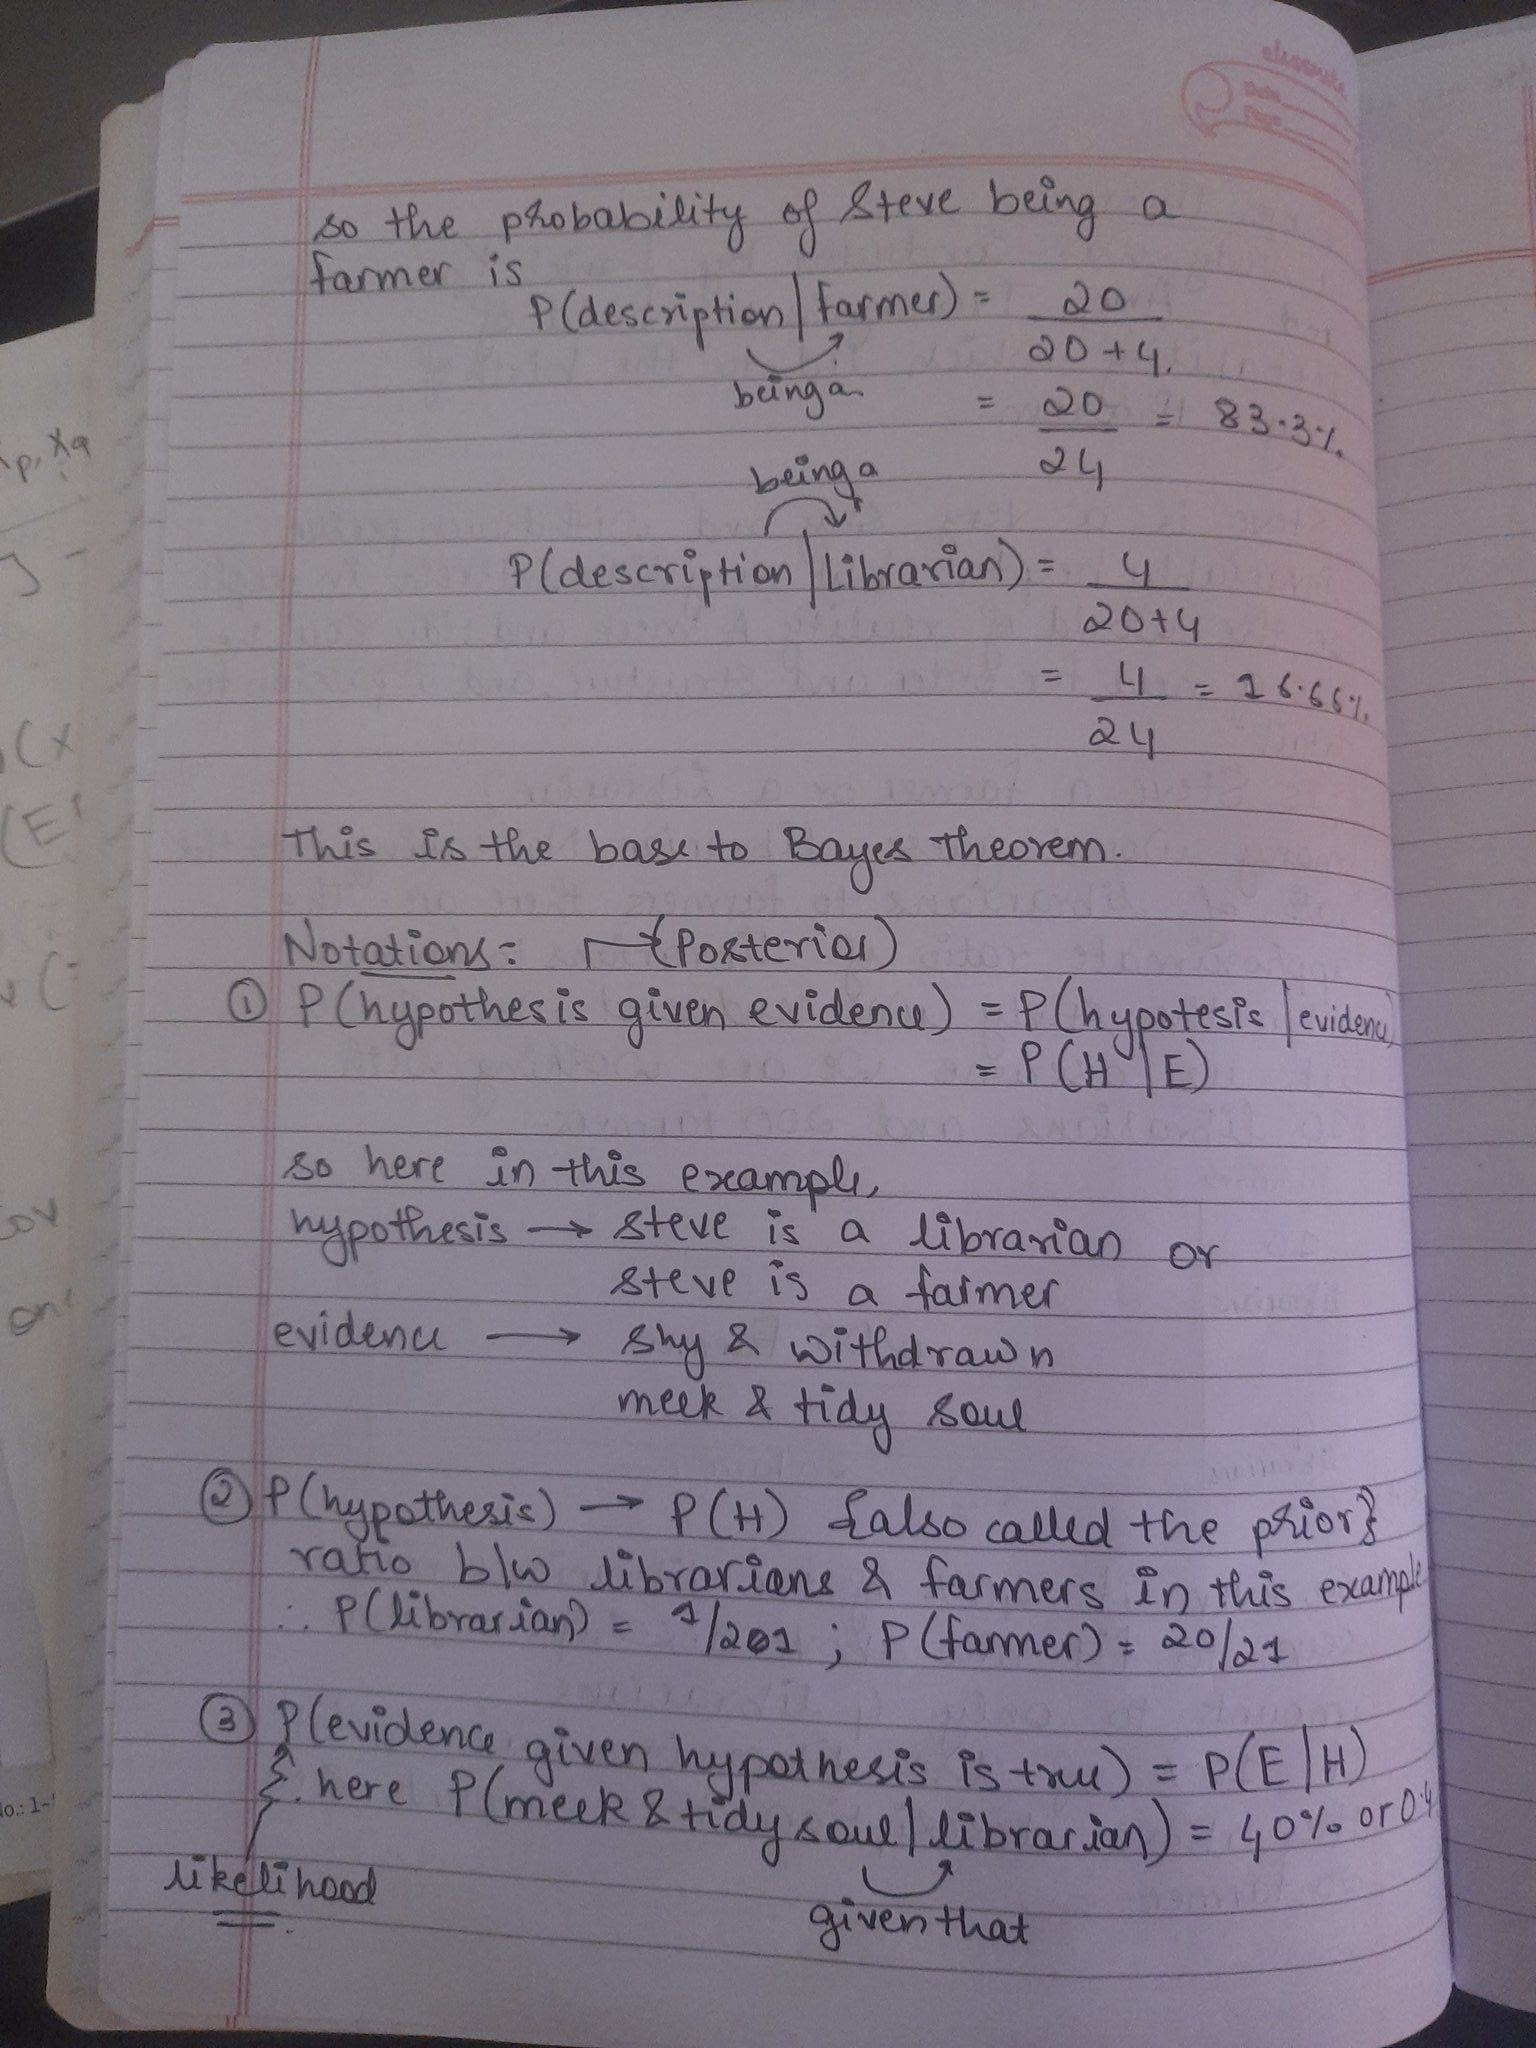 classmate
Date
Page
so the probability of Steve being a
farmer is
P(description | farmer) = 20
20+4.
being a
= 20 = 83.3%
24
being a
P(description | Librarian) = 4
20+4
= 4 = 16.66%
24
This is the base to Bayes Theorem.
Notations: (Posterior)
① P(hypothesis given evidence) = P(hypotesis | evidence)
= P(H | E)
so here in this example,
hypothesis → steve is a librarian or
steve is a farmer
evidence → shy & withdrawn
meek & tidy soul
② P(hypothesis) → P(H) {also called the prior}
ratio b/w librarians & farmers in this example
∴ P(librarian) = 1/201 ; P(farmer) = 20/21
③ P(evidence given hypothesis is true) = P(E | H)
here P(meek & tidy soul | librarian) = 40% or 0.4
likelihood
given that